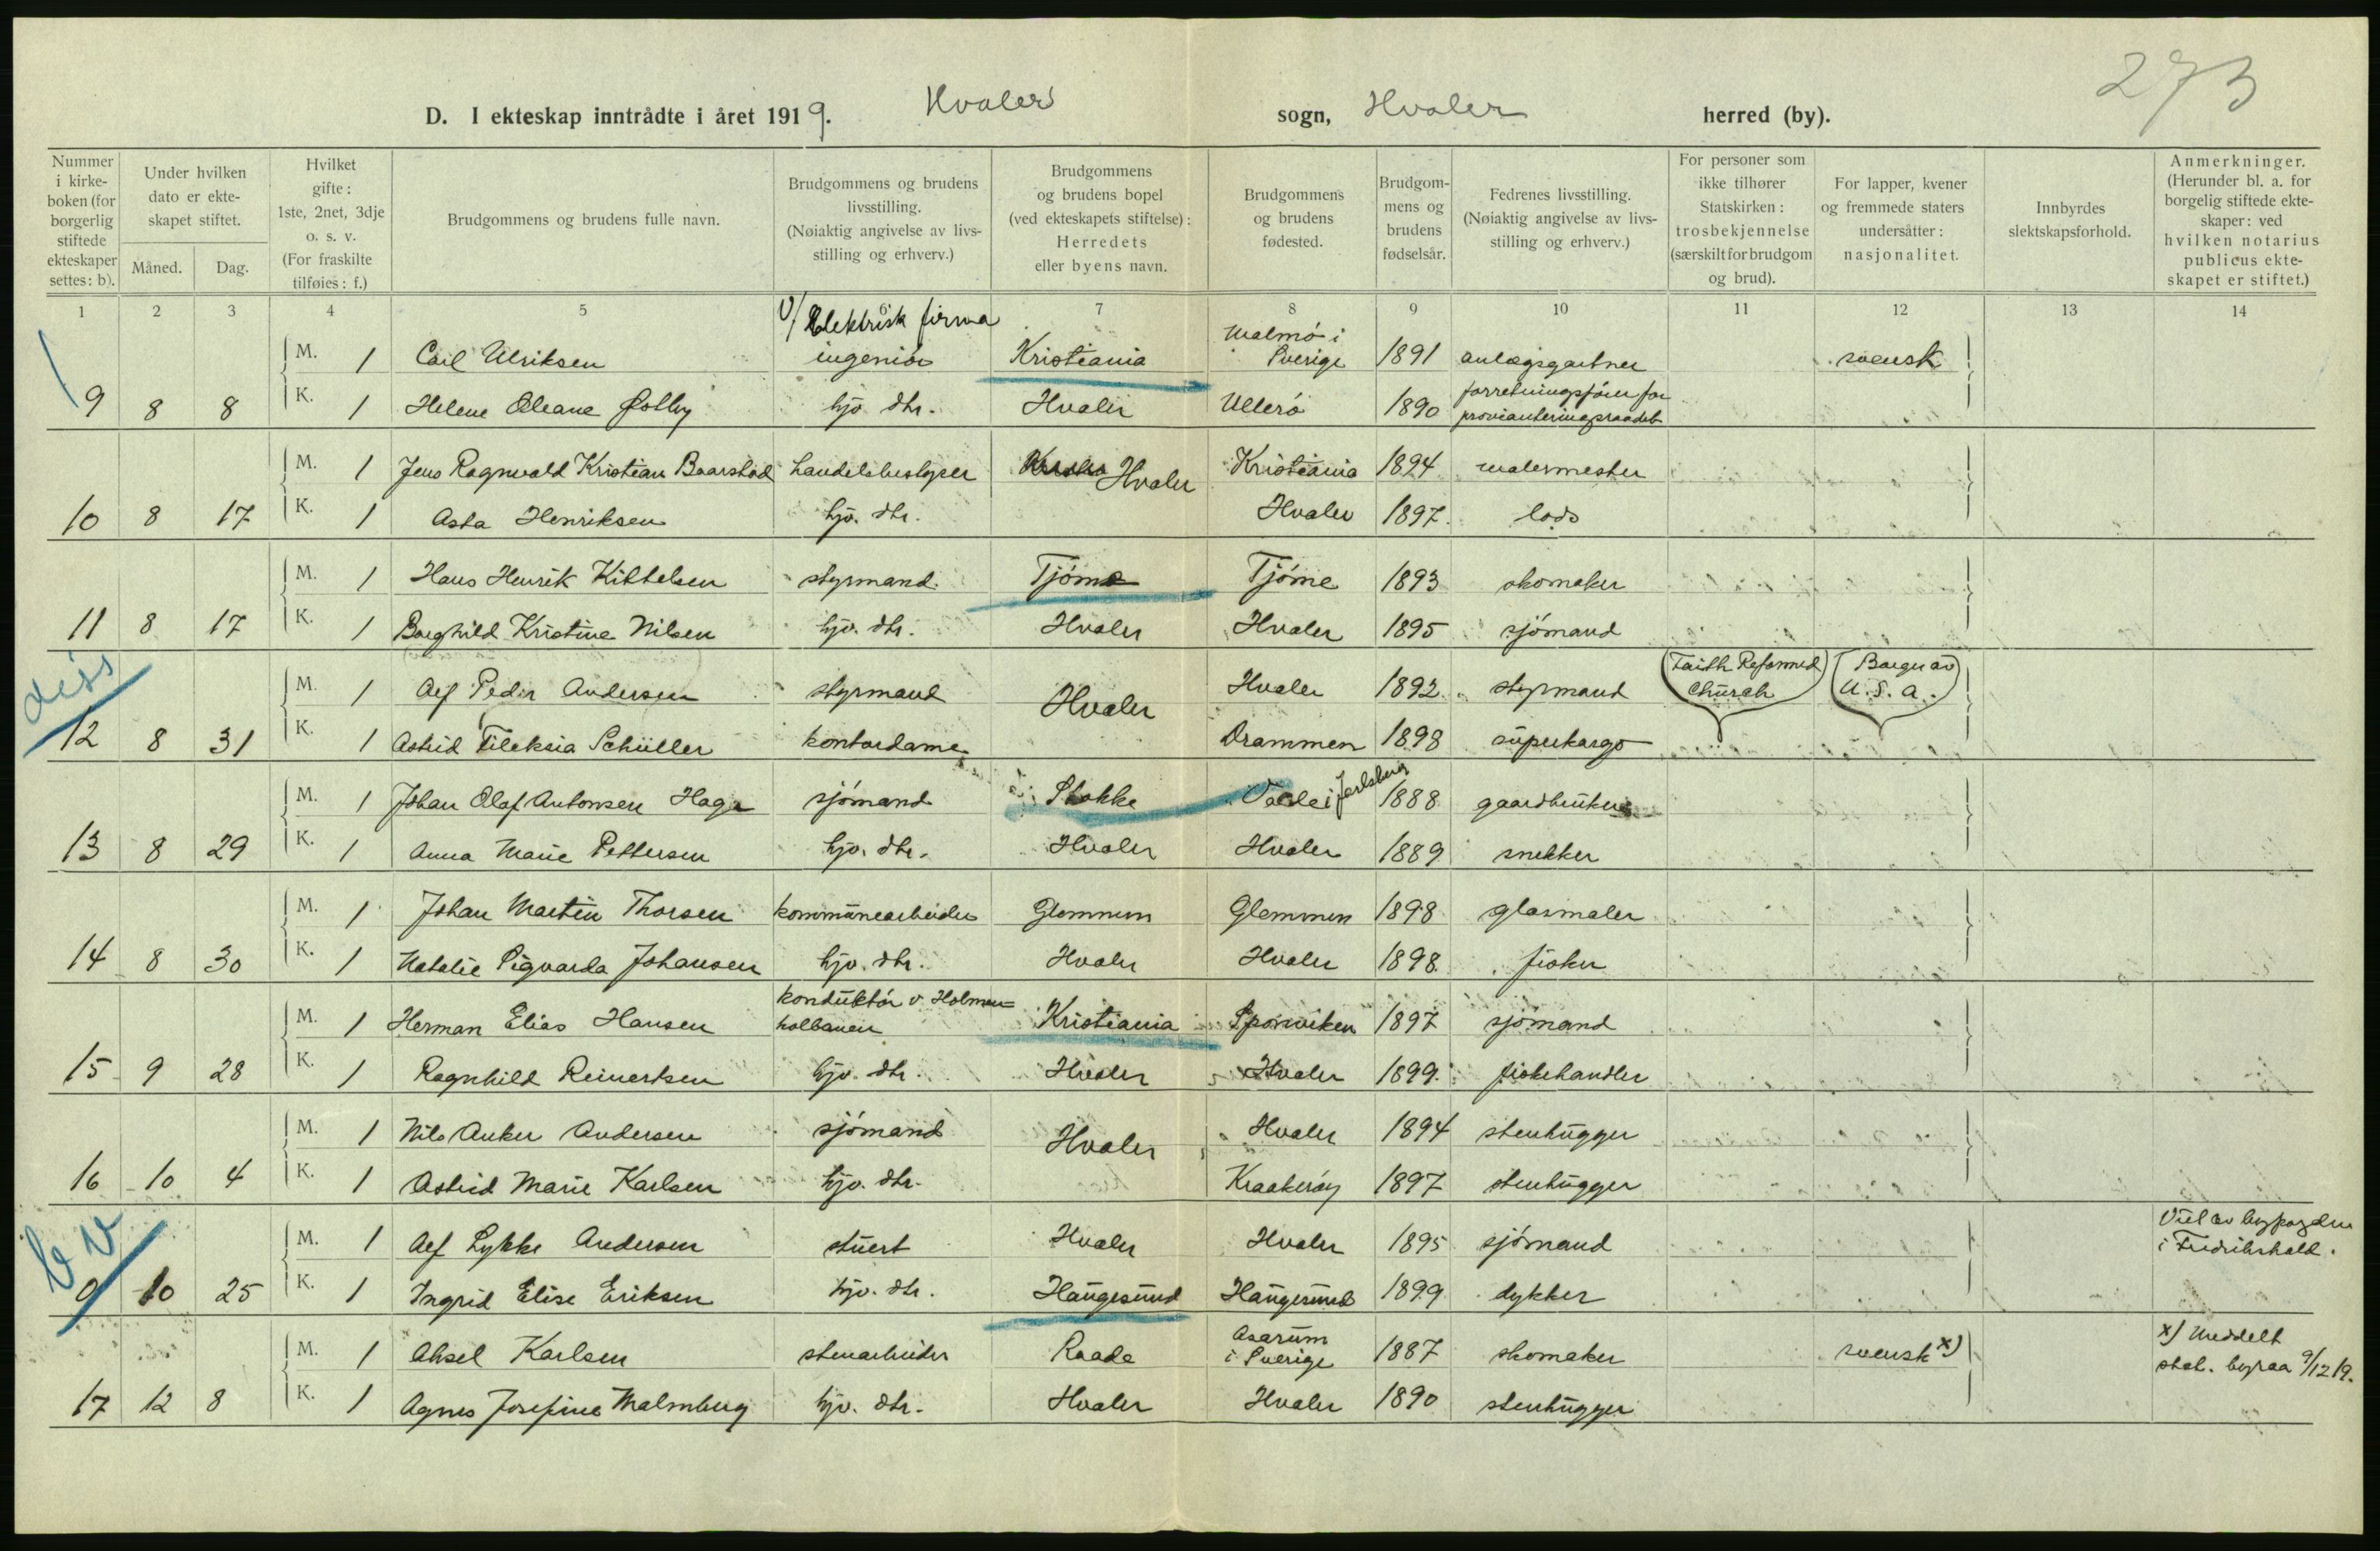 273
D. I ekteskap inntrådte i året 1919. Hvaler sogn, Hvaler herred (by).
Nummer i kirkeboken (for borgerlig stiftede ekteskaper settes: b).
Under hvilken dato er ekteskapet stiftet.
Måned. Dag.
Hvilket gifte: 1ste, 2net, 3dje o. s. v. (For fraskilte tilføies: f.)
Brudgommens og brudens fulle navn.
Brudgommens og brudens livsstilling. (Nøiaktig angivelse av livsstilling og erhverv.)
Brudgommens og brudens bopel (ved ekteskapets stiftelse): Herredets eller byens navn.
Brudgommens og brudens fødested.
Brudgommens og brudens fødselsår.
Fedrenes livsstilling. (Nøiaktig angivelse av livsstilling og erhverv.)
For personer som ikke tilhører Statskirken: trosbekjennelse (særskilt for brudgom og brud).
For lapper, kvener og fremmede staters undersåtter: nasjonalitet.
Innbyrdes slektskapsforhold.
Anmerkninger. (Herunder bl. a. for borgelig stiftede ekteskaper: ved hvilken notarius publicus ekteskapet er stiftet.)
1 2 3 4 5 6 7 8 9 10 11 12 13 14
M. 1 Carl Ulriksen v/ Elektrisk firma ingeniør Kristiania Malmø i Sverige 1891 anlægsgartner svensk
9 8 8 K. 1 Helene Oleane Østby hjv. dtr. Hvaler Ullerø 1890 forretningsfører for provianteringsraadet
M. 1 Jens Ragnvald Kristian Baarstad handelsbestyrer Hvaler Kristiania 1894 malermester
10 8 17 K. 1 Asta Henriksen hjv. dtr. Hvaler 1897 lods
M. 1 Hans Henrik Kittelsen styrmand Tjøme Tjøme 1893 skomaker
11 8 17 K. 1 Borghild Kristine Nilsen hjv. dtr. Hvaler Hvaler 1895 sjømand
diss
M. 1 Alf Peder Andersen styrmand Hvaler Hvaler 1892 styrmand Faith Reformed Church Borger av U.S.A.
12 8 31 K. 1 Astrid Schüller kontordame Drammen 1898 superkargo
M. 1 Johan Olaf Antonsen Haga sjømand Stokke Vaale i Jarlsberg 1888 gaardbruker
13 8 29 K. 1 Anna Marie Pettersen hjv. dtr. Hvaler Hvaler 1889 snekker
M. 1 Johan Martin Thorsen kommunearbeider Glemmen Glemmen 1898 glasmaler
14 8 30 K. 1 Natalie Sigvarda Johansen hjv. dtr. Hvaler Hvaler 1898 fisker
M. 1 Herman Elias Hansen konduktør v. Holmenkolbanen Kristiania Sponviken 1897 sjømand
15 9 28 K. 1 Ragnhild Reinertsen hjv. dtr. Hvaler Hvaler 1899 fiskehandler
M. 1 Nils Anker Andersen sjømand Hvaler Hvaler 1894 stenhugger
16 10 4 K. 1 Astrid Marie Karlsen hjv. dtr. Kraakerøy 1897 stenhugger
b v
M. 1 Alf Lykke Andersen stuert Hvaler Hvaler 1895 sjømand Viet av byfogden i Fredrikshald.
0 10 25 K. 1 Ingrid Elise Eriksen hjv. dtr. Haugesund Haugesund 1899 dykker
M. 1 Aksel Karlsen stenarbeider Raade Asarum i Sverige 1887 skomaker svensk x) x) Meddelt stat. byraa 9/12 19.
17 12 8 K. 1 Agnes Josefine Malmberg hjv. dtr. Hvaler Hvaler 1890 stenhugger